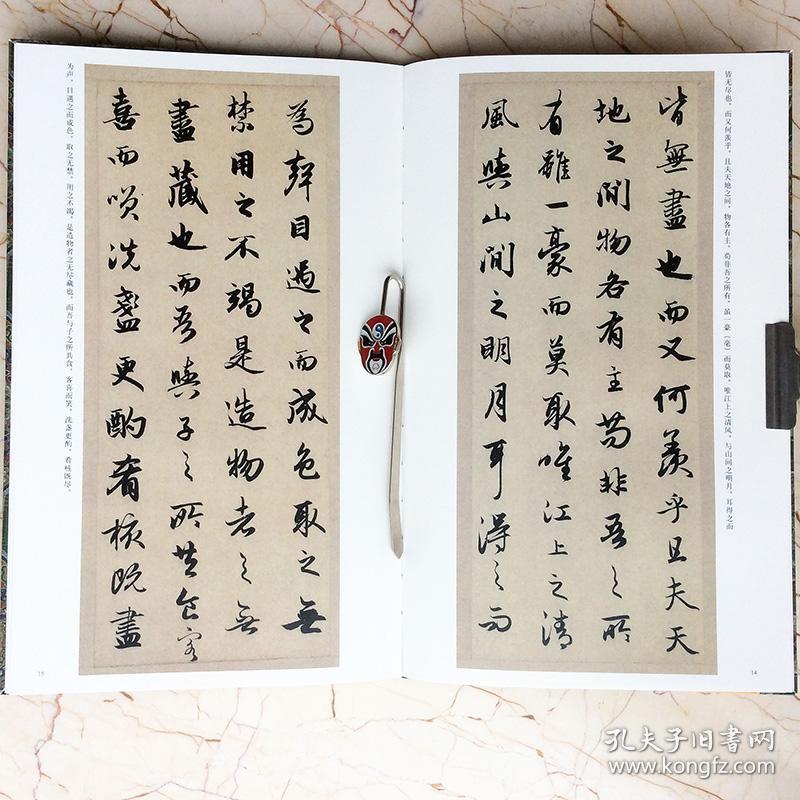 皆无尽也，而又何羡乎，且夫天地之间，物各有主，苟非吾之所有，虽一豪（毫）而莫取，唯江上之清风，与山间之明月，耳得之而
皆無盡也而又何羨乎且夫天
地之間物各有主苟非吾之所
有雖一豪而莫取唯江上之清
風與山間之明月耳得之而
14
為聲目遇之而成色取之無
禁用之不竭是造物者之無
盡藏也而吾與子之所共食客
喜而笑洗盞更酌肴核既盡
为声，目遇之而成色，取之无禁，用之不竭，是造物者之无尽藏也，而吾与子之所共食，客喜而笑，洗盏更酌，肴核既尽，
15
孔夫子旧书网
www.kongfz.com